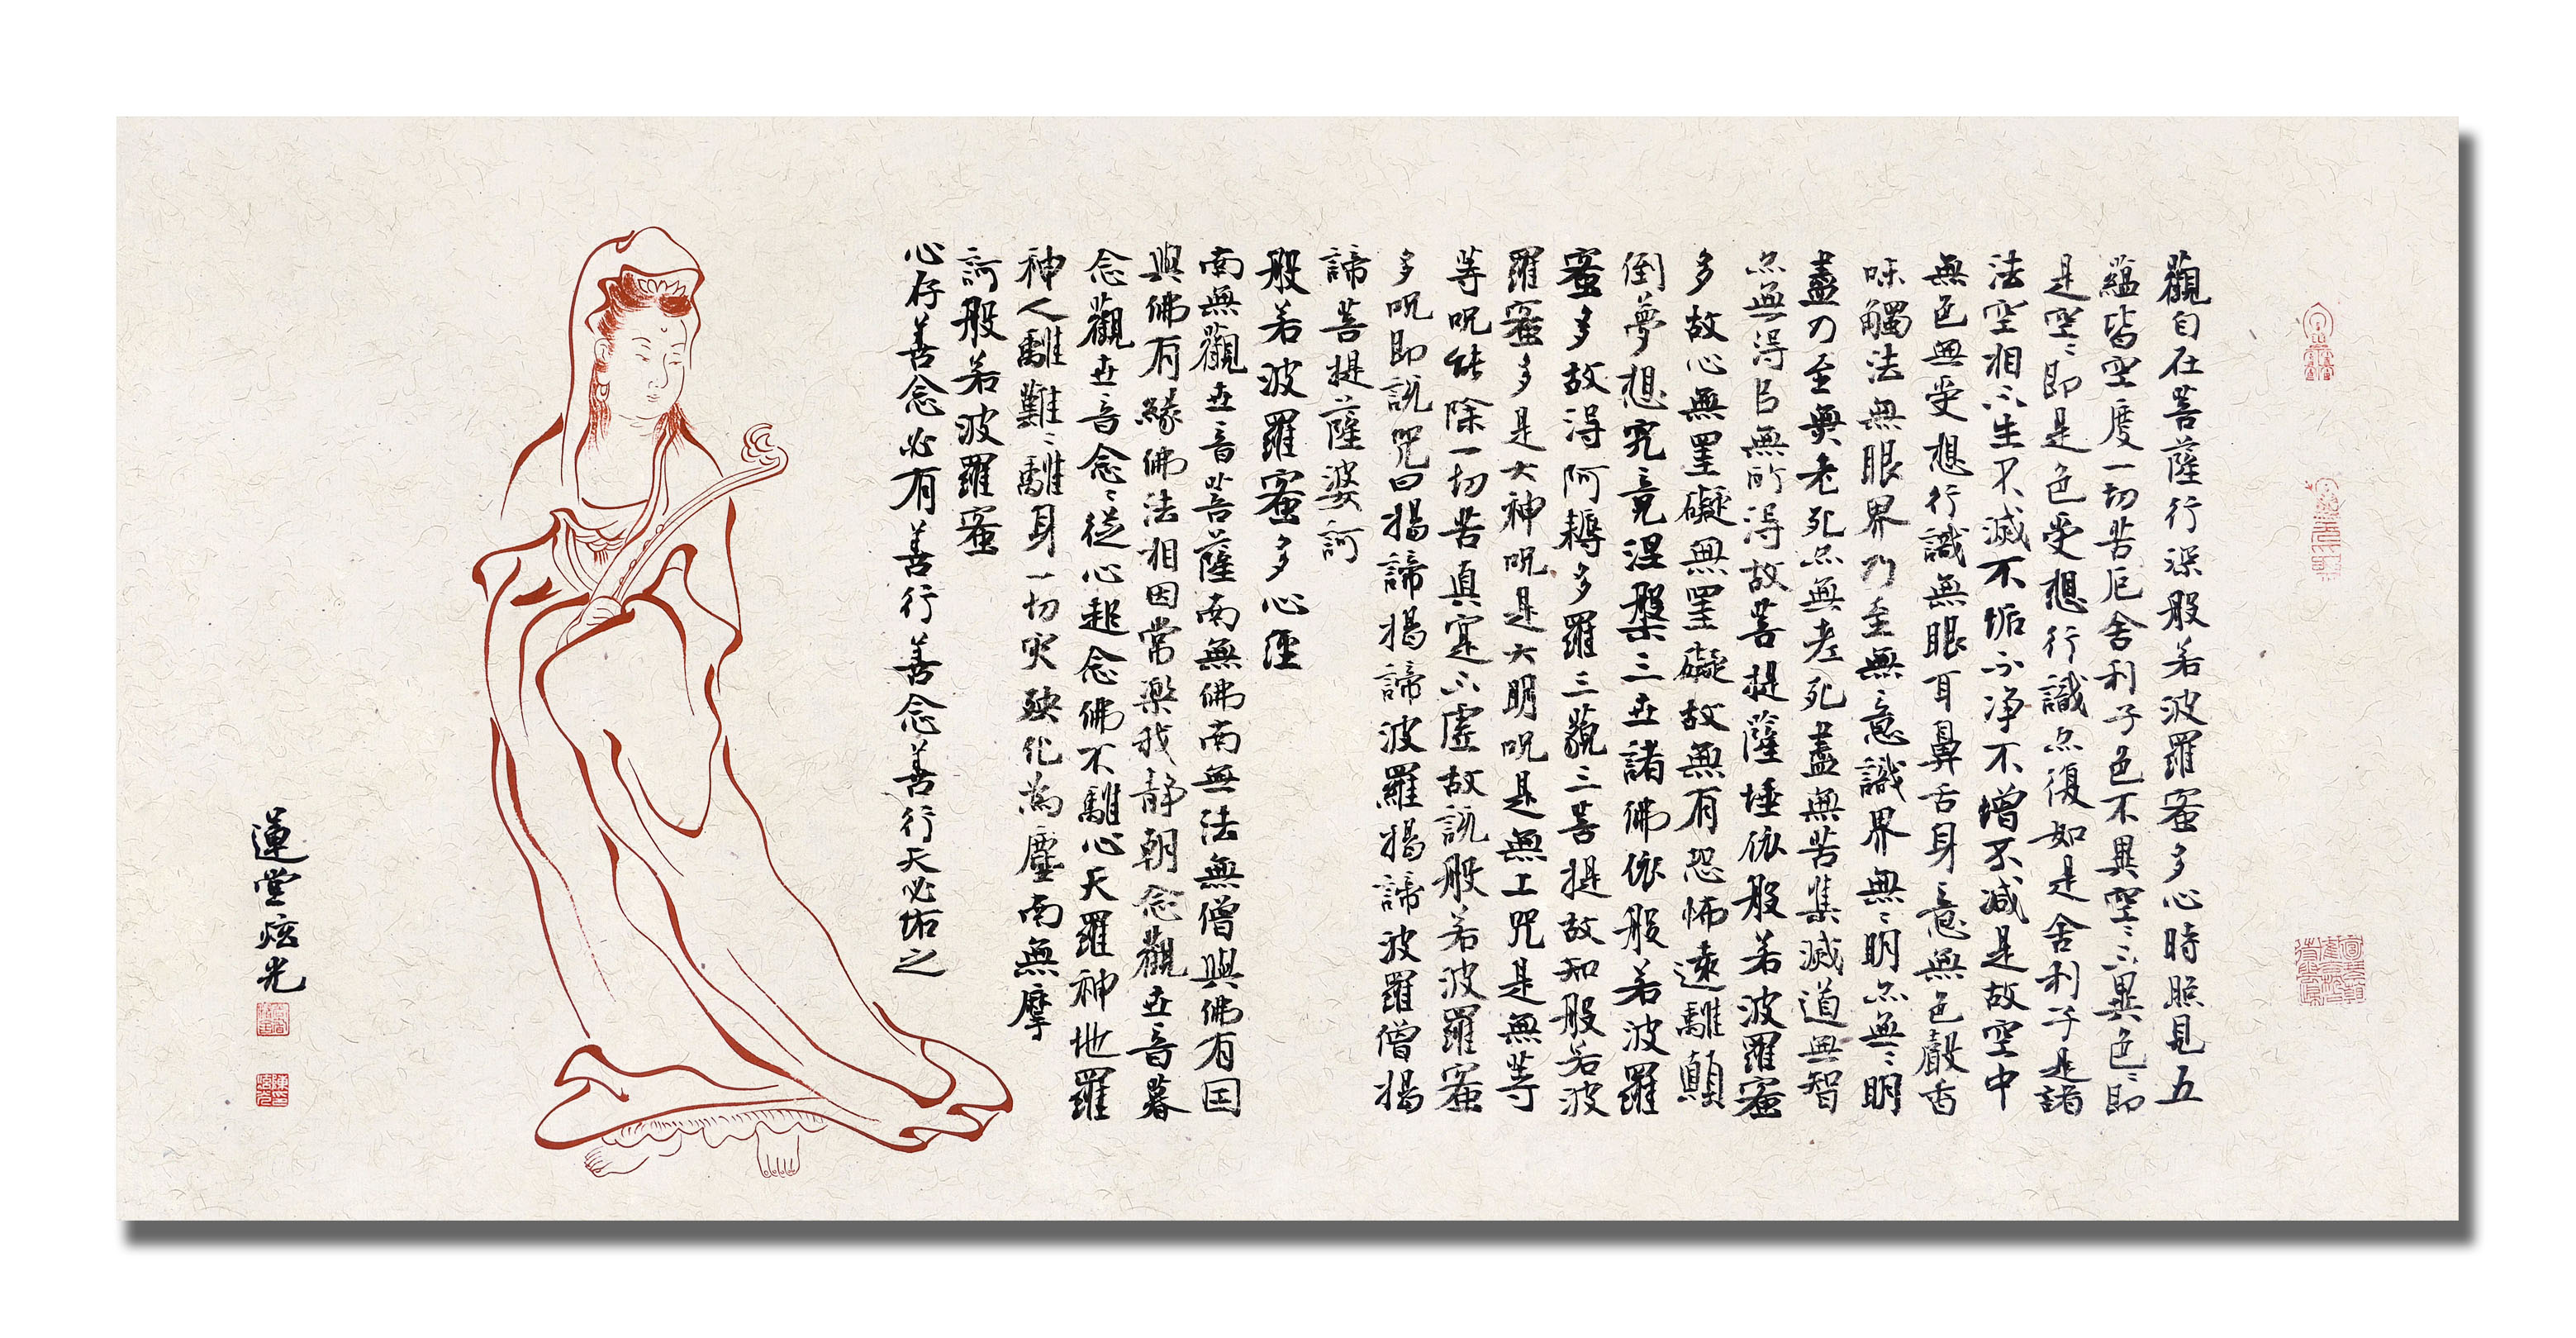 觀自在菩薩行深般若波羅蜜多心時照見五
蘊皆空度一切苦厄舍利子色不異空〻不異色〻即
是空〻即是色受想行識亦復如是舍利子是諸
法空相不生不滅不垢不净不增不减是故空中
無色無受想行識無眼耳鼻舌身意無色聲香
味觸法無眼界乃至無意識界無〻明亦無〻明
盡乃至無老死亦無老死盡無苦集滅道無智
亦無得以無所得故菩提薩埵依般若波羅蜜
多故心無罣礙無罣礙故無有恐怖遠離顛
倒夢想究竟涅槃三世諸佛依般若波羅
蜜多故得阿耨多羅三藐三菩提故知般若波
羅蜜多是大神呪是大明呪是無上咒是無等
等呪能除一切苦真寔不虛故説般若波羅蜜
多呪即説咒曰揭諦揭諦波羅揭諦波羅僧揭
諦菩提薩婆訶
般若波羅蜜多心經
南無觀世音菩薩南無佛南無法無僧與佛有因
與佛有緣佛法相因常樂我静朝念觀世音暮
念觀世音念〻從心起念佛不離心天羅神地羅
神人離難〻離身一切灾殃化為塵南無摩
訶般若波羅蜜
心存善念必有善行善念善行天必佑之
蓮堂炫光